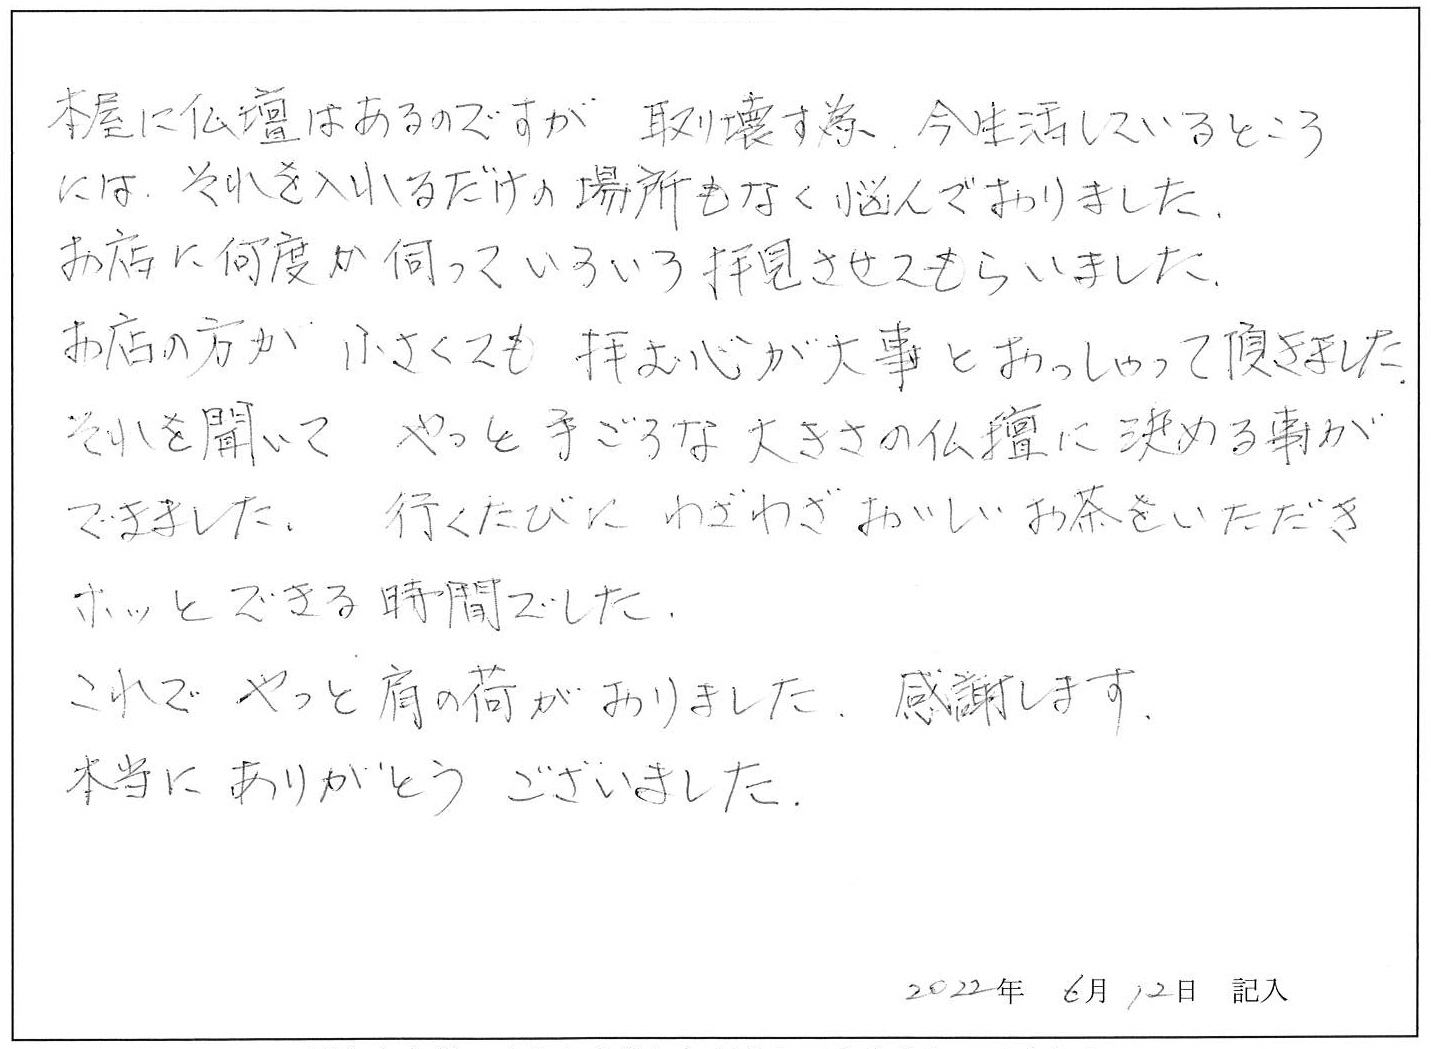 本屋に仏壇はあるのですが 取り壊す為、今生活しているところ
には、それを入れるだけの場所もなく悩んでおりました。
お店に何度か伺っていろいろ拝見させてもらいました。
お店の方が 小さくても 拝む心が大事とおっしゃって頂きました。
それを聞いて やっと手ごろな大きさの仏壇に決める事が
できました。 行くたびに わざわざおいしいお茶をいただき
ホッとできる時間でした。
これで やっと肩の荷がおりました。 感謝します。
本当に ありがとう ございました。
2022年 6月 12日 記入